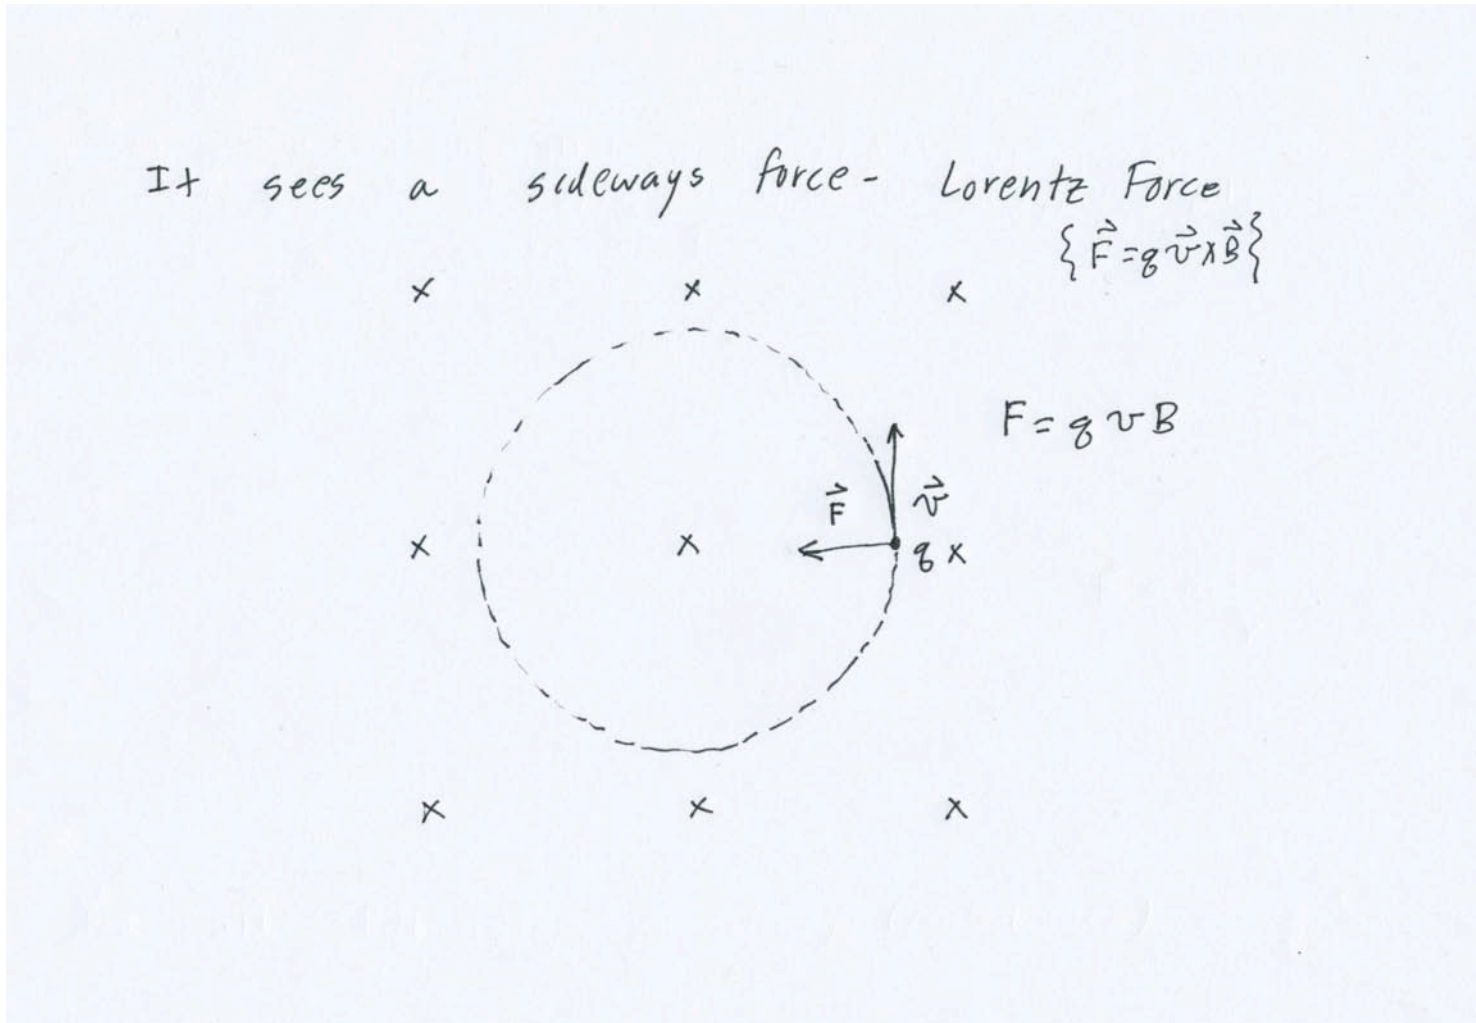 It sees a sideways force - Lorentz Force
{F⃗ = q v⃗ x B⃗}
x x x
F = q v B
F⃗ v⃗
x x q x
x x x